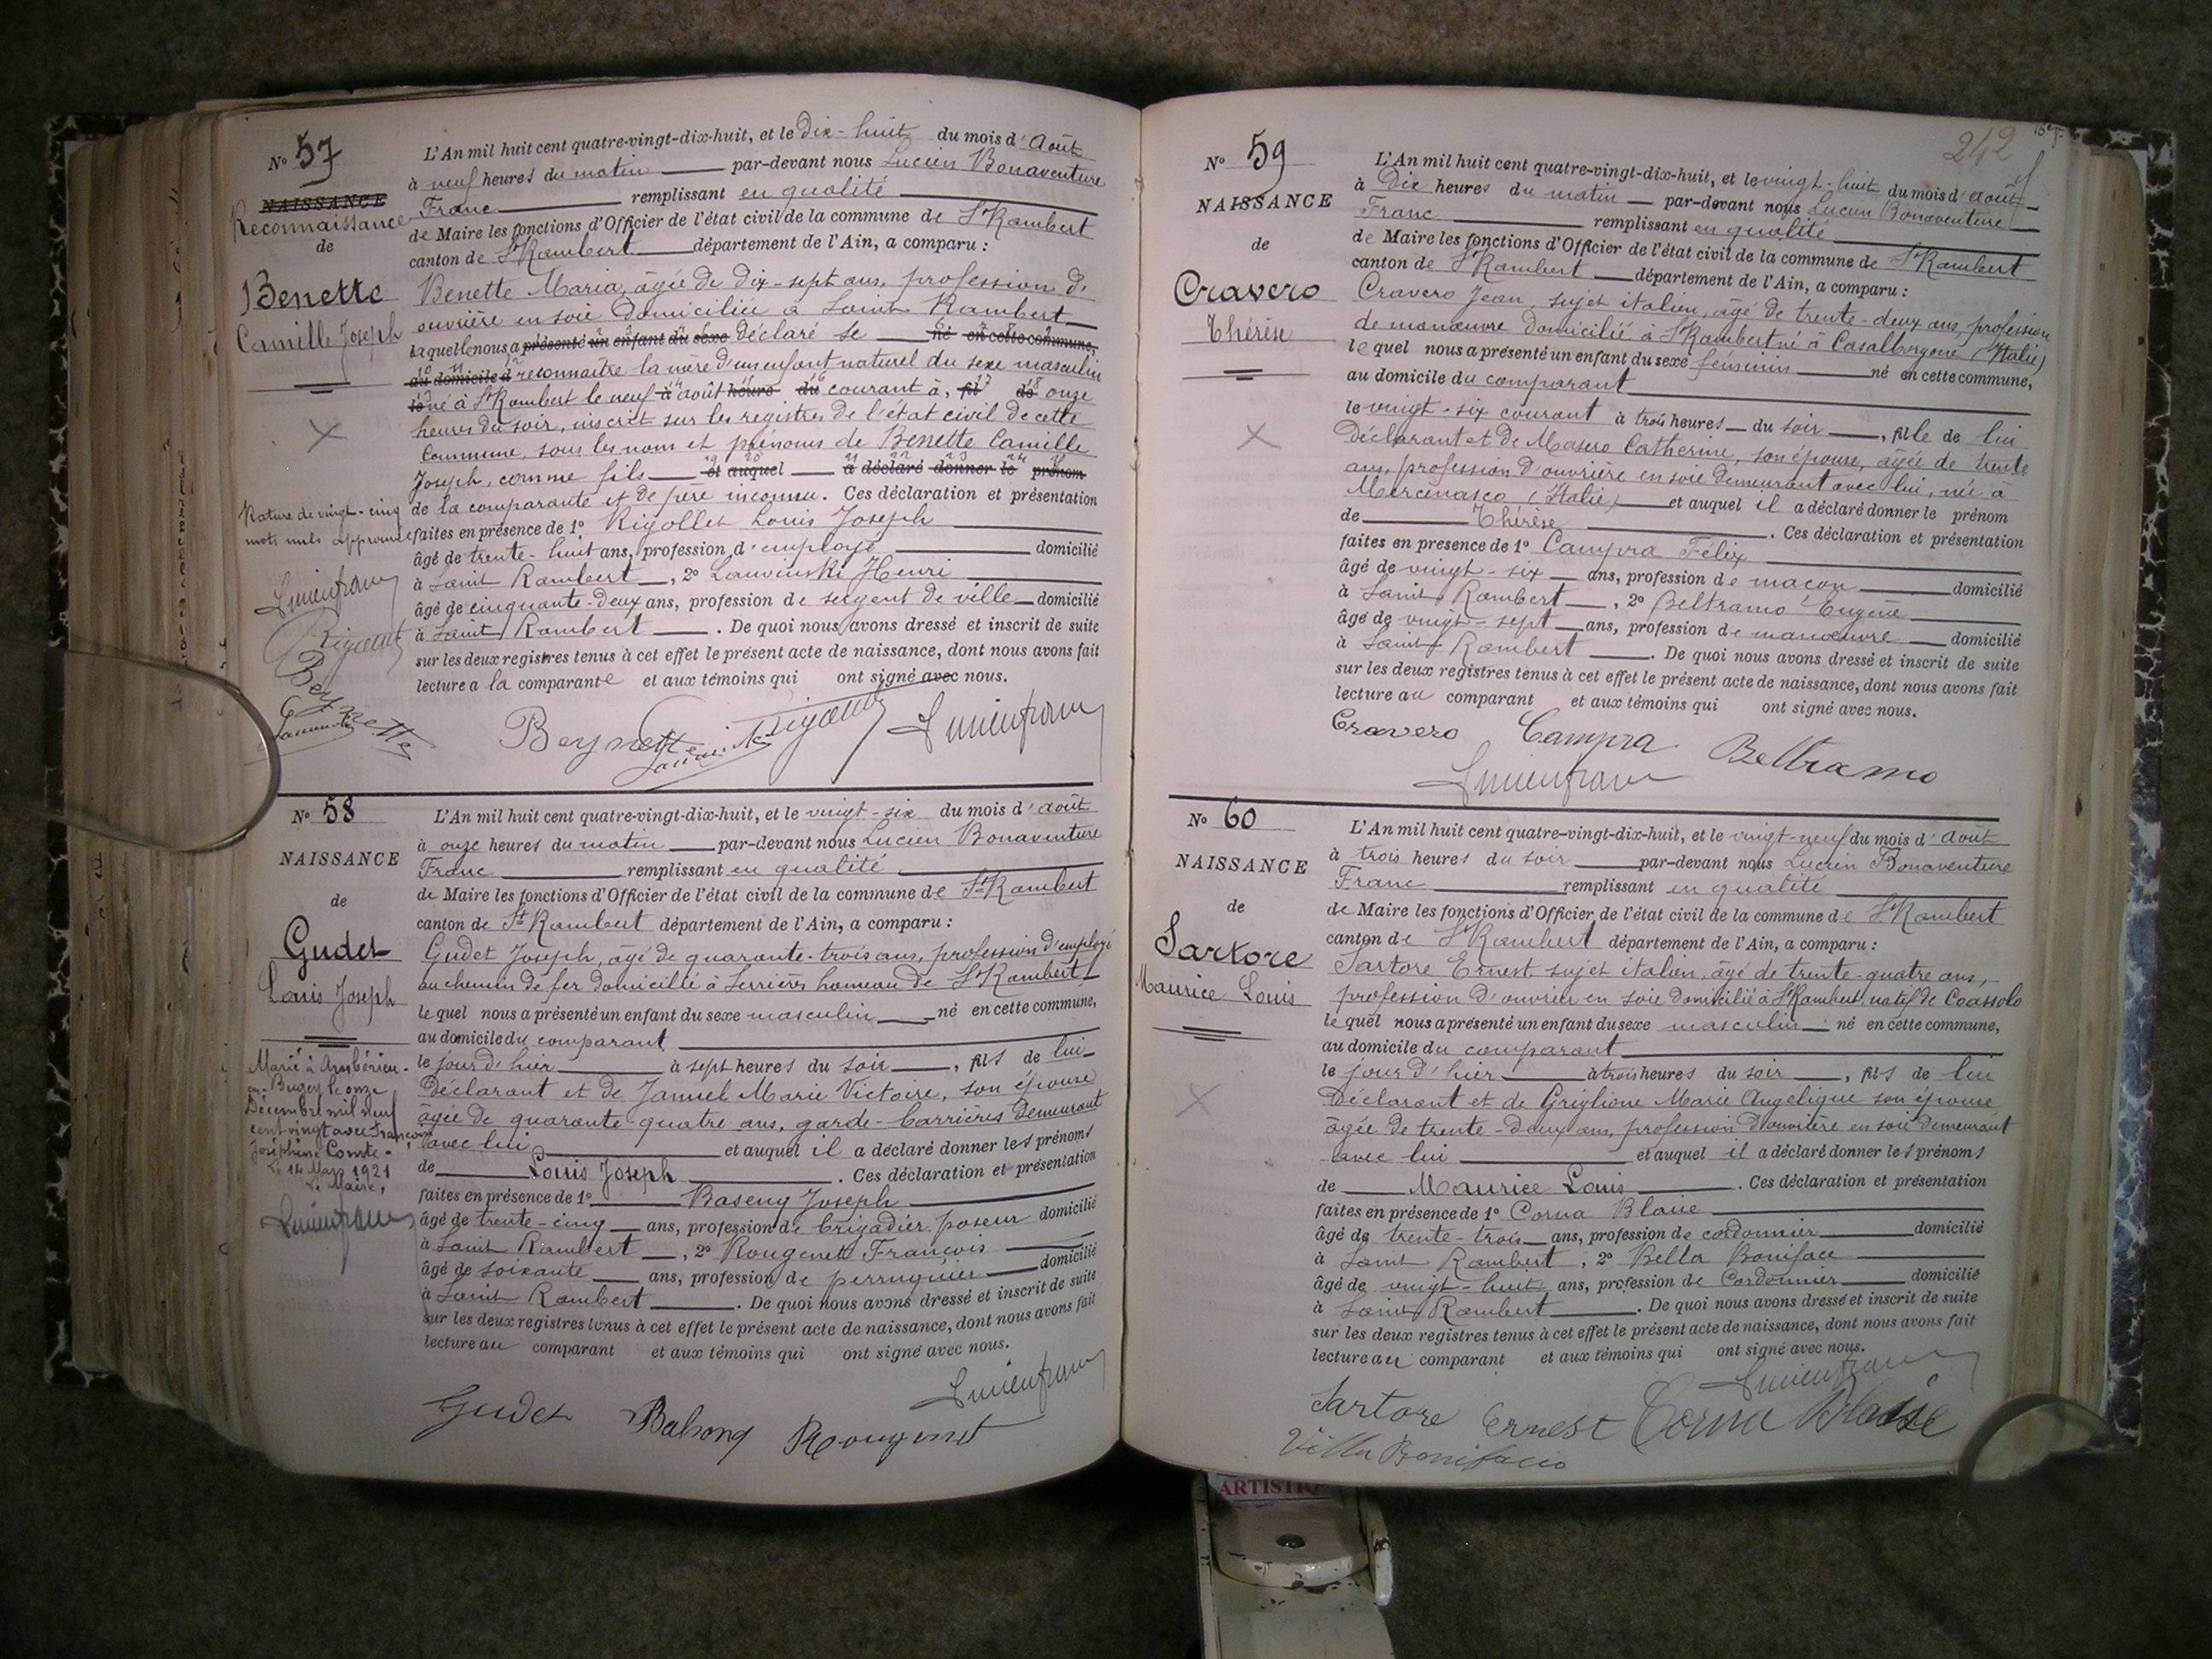 N° 57
NAISSANCE
Reconnaissance
de
Benette
Camille Joseph
L'An mil huit cent quatre-vingt-dix-huit, et le dix-huit du mois d'Août
à neuf heures du matin par-devant nous Lucien Bonaventure
Franc remplissant en qualité
de Maire les fonctions d'Officier de l'état civil de la commune de St Rambert
canton de St Rambert département de l'Ain, a comparu :
Benette Maria, âgée de dix-sept ans, profession d'
ouvrière en soie domiciliée à Saint Rambert
laquelle nous a présenté un enfant du sexe déclaré se né en cette commune,
au domicile d reconnaître la mère d'un enfant naturel du sexe masculin
le né à St Rambert le neuf à août heure du courant à, fil de onze
heures du soir, inscrit sur les registres de l'état civil de cette
commune, sous les nom et prénoms de Benette Camille
Joseph, comme fils et auquel a déclaré donner le prénom
de la comparante et de père inconnu. Ces déclaration et présentation
faites en présence de 1° Rigollet Louis Joseph
âgé de trente-huit ans, profession d'employé domicilié
à Saint Rambert, 2° Lauvinski Henri
âgé de cinquante-deux ans, profession de sergent de ville domicilié
à Saint Rambert. De quoi nous avons dressé et inscrit de suite
sur les deux registres tenus à cet effet le présent acte de naissance, dont nous avons fait
lecture a la comparante et aux témoins qui ont signé avec nous.
Rature de vingt-cinq
mots nuls approuvée
Lucien franc
Beynette
Beynette Lucien franc
N° 58
NAISSANCE
de
Gudet
Louis Joseph
L'An mil huit cent quatre-vingt-dix-huit, et le vingt-six du mois d'août
à onze heures du matin par-devant nous Lucien Bonaventure
Franc remplissant en qualité
de Maire les fonctions d'Officier de l'état civil de la commune de St Rambert
canton de St Rambert département de l'Ain, a comparu :
Gudet Joseph, âgé de quarante-trois ans, profession d'employé
au chemin de fer domicilié à Serrières hameau de St Rambert
lequel nous a présenté un enfant du sexe masculin né en cette commune,
au domicile du comparant
le jour d'hier à sept heures du soir, fils de lui
déclarant et de Jamuel Marie Victoire, son épouse
âgée de quarante-quatre ans, garde-barrières demeurant
avec lui et auquel il a déclaré donner les prénoms
de Louis Joseph. Ces déclaration et présentation
faites en présence de 1° Joseph
âgé de trente-cinq ans, profession de brigadier poseur domicilié
à Saint Rambert, 2° Rougenet François
âgé de soixante ans, profession de perruquier domicilié
à Saint Rambert. De quoi nous avons dressé et inscrit de suite
sur les deux registres tenus à cet effet le présent acte de naissance, dont nous avons fait
lecture au comparant et aux témoins qui ont signé avec nous.
Marié à Ambérieu-
en-Bugey le onze
Décembre mil neuf
cent vingt avec Françoise
Joséphine Comte.
Le 14 Mars 1921
Le Maire,
Lucien franc
Lucien franc
Gudet Rougenet
242
N° 59
NAISSANCE
de
Cravero
Thérèse
L'An mil huit cent quatre-vingt-dix-huit, et le vingt-huit du mois d'août
à Dix heures du matin par-devant nous Lucien Bonaventure
Franc remplissant en qualité
de Maire les fonctions d'Officier de l'état civil de la commune de St Rambert
canton de St Rambert département de l'Ain, a comparu :
Cravero Jean, sujet italien, âgé de trente-deux ans, profession
de manœuvre domicilié à St Rambert né à Casalborgone (Italie)
lequel nous a présenté un enfant du sexe féminin né en cette commune,
au domicile du comparant
le vingt-six courant à trois heures du soir, fille de lui
déclarant et de Masero Catherine, son épouse, âgée de trente
ans, profession d'ouvrière en soie demeurant avec lui, née à
Mercenasco (Italie) et auquel il a déclaré donner le prénom
de Thérèse. Ces déclaration et présentation
faites en présence de 1° Campra Félix
âgé de vingt-six ans, profession de maçon domicilié
à Saint Rambert, 2° Beltramo Eugène
âgé de vingt-sept ans, profession de manœuvre domicilié
à Saint Rambert. De quoi nous avons dressé et inscrit de suite
sur les deux registres tenus à cet effet le présent acte de naissance, dont nous avons fait
lecture au comparant et aux témoins qui ont signé avec nous.
Cravero Campra Beltramo
Lucien franc
N° 60
NAISSANCE
de
Sartore
Maurice Louis
L'An mil huit cent quatre-vingt-dix-huit, et le vingt-neuf du mois d'août
à trois heures du soir par-devant nous Lucien Bonaventure
Franc remplissant en qualité
de Maire les fonctions d'Officier de l'état civil de la commune de St Rambert
canton de St Rambert département de l'Ain, a comparu :
Sartore Ernest sujet italien, âgé de trente-quatre ans,
profession d'ouvrier en soie domicilié à St Rambert, natif de Coassolo
lequel nous a présenté un enfant du sexe masculin né en cette commune,
au domicile du comparant
le jour d'hier à trois heures du soir, fils de lui
déclarant et de Griglione Marie Angélique son épouse
âgée de trente-deux ans, profession d'ouvrière en soie demeurant
avec lui et auquel il a déclaré donner les prénoms
de Maurice Louis. Ces déclaration et présentation
faites en présence de 1° Corna Blaise
âgé de trente-trois ans, profession de cordonnier domicilié
à Saint Rambert, 2° Bella Boniface
âgé de vingt-huit ans, profession de Cordonnier domicilié
à Saint Rambert. De quoi nous avons dressé et inscrit de suite
sur les deux registres tenus à cet effet le présent acte de naissance, dont nous avons fait
lecture au comparant et aux témoins qui ont signé avec nous.
Lucien franc
Sartore Ernest Corna Blaise
Villa Bonifacio
ARTISTIQ